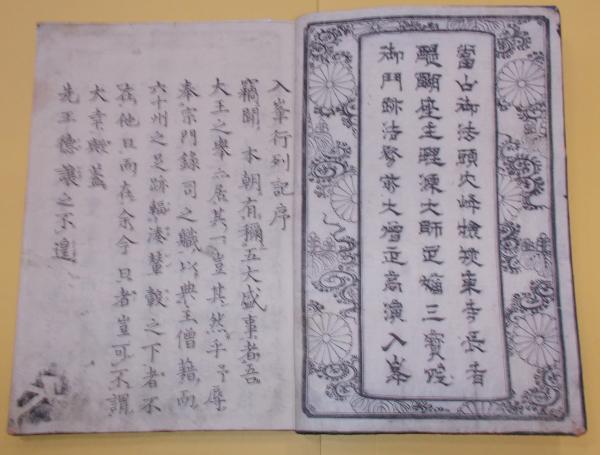 當山御法頭大峰檢挍東寺長者
醍醐座主理源大師正嫡三寶院
御門跡法務前大僧正高演入峯
入峯行列記序
竊聞 本朝有稱五大盛事者吾
大王之居其一豈其然乎予辱
奉宗門錄司之職以典僧籍而
六十州之足跡輻湊輦轂之下者不
在他日而在余今日者豈可不謂
大幸歟蓋
先王德讓之不遑